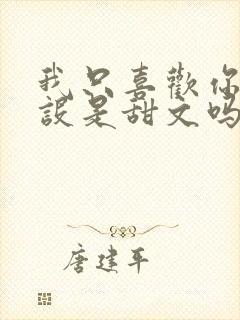 我只喜歡你
設是甜文吗
唐建平